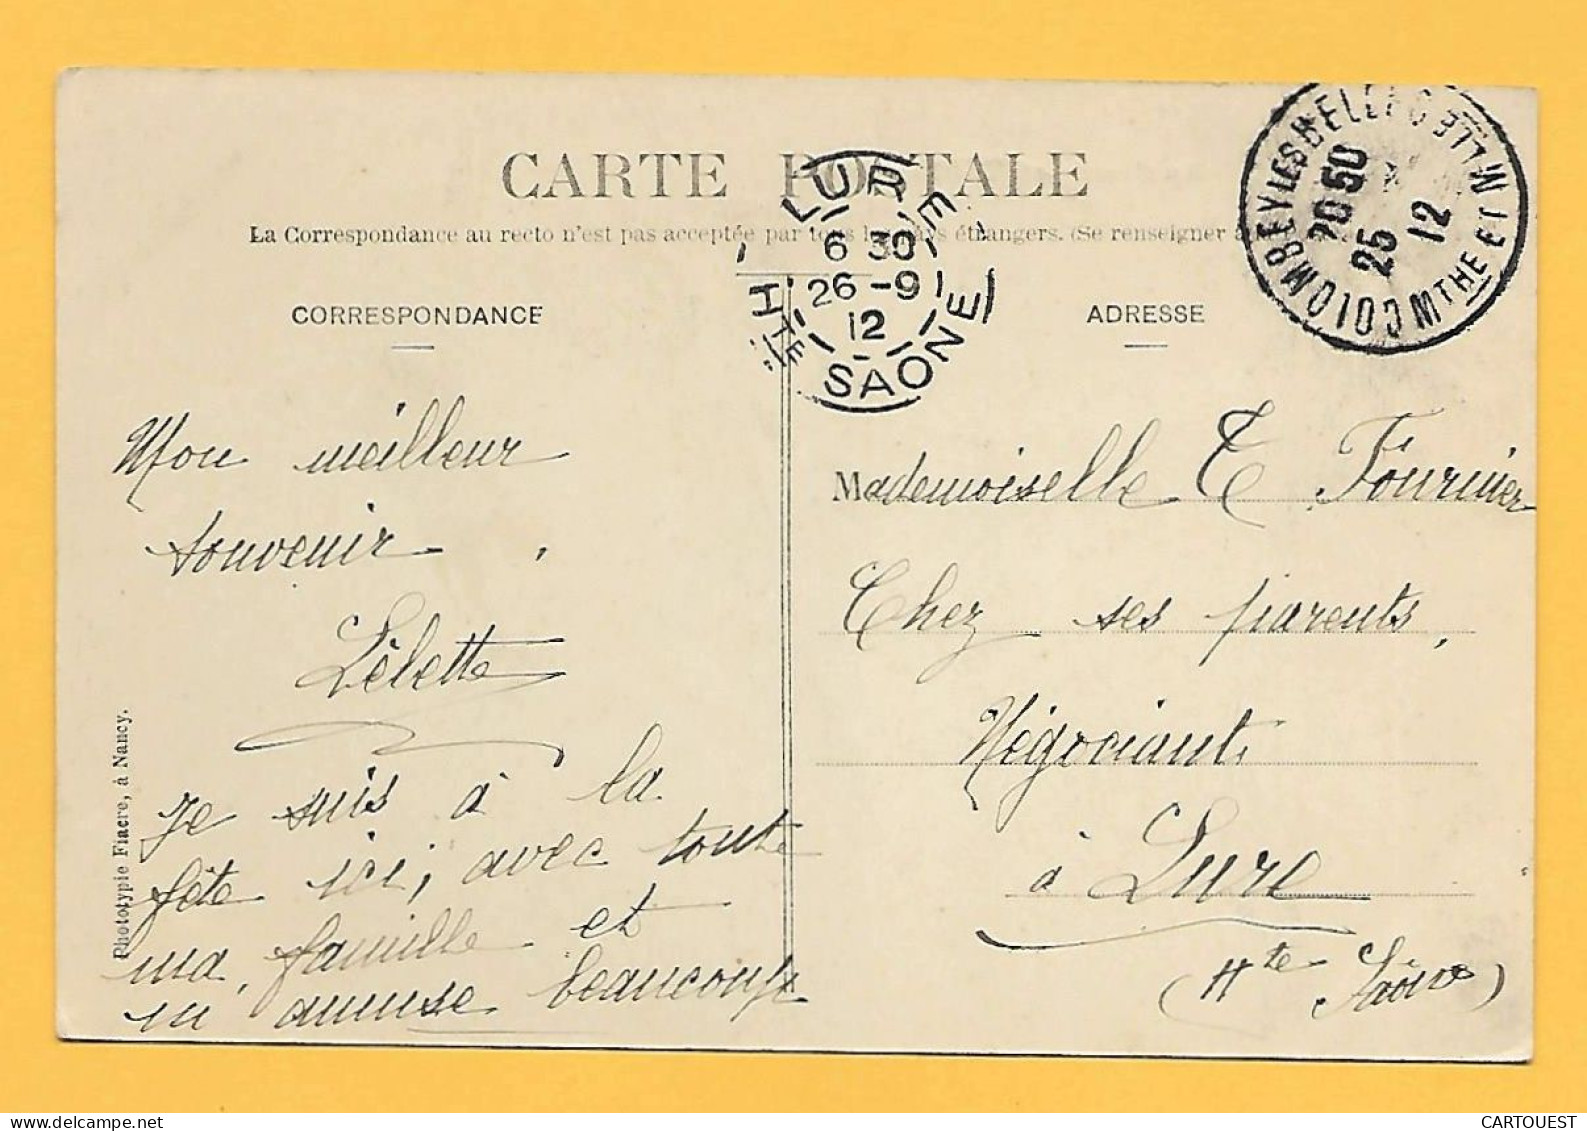 CARTE POSTALE
La Correspondance au recto n'est pas acceptée par tous les pays étrangers. (Se renseigner à la
CORRESPONDANCE
ADRESSE
LURE
6 30
26 -9
12
HTE SAÔNE
COLOMBEY LES BELLES
MTHE ET MLLE
20 50
25
12
Mon meilleur
souvenir.
Lêlette
Je suis à la
fête ici, avec toute
ma famille et
m'amuse beaucoup
Mademoiselle E Fournier
Chez ses parents,
Négociant
à Lure
(Hte Saône)
Phototypie Fiacre, à Nancy.
www.delcampe.net
CARTOUEST